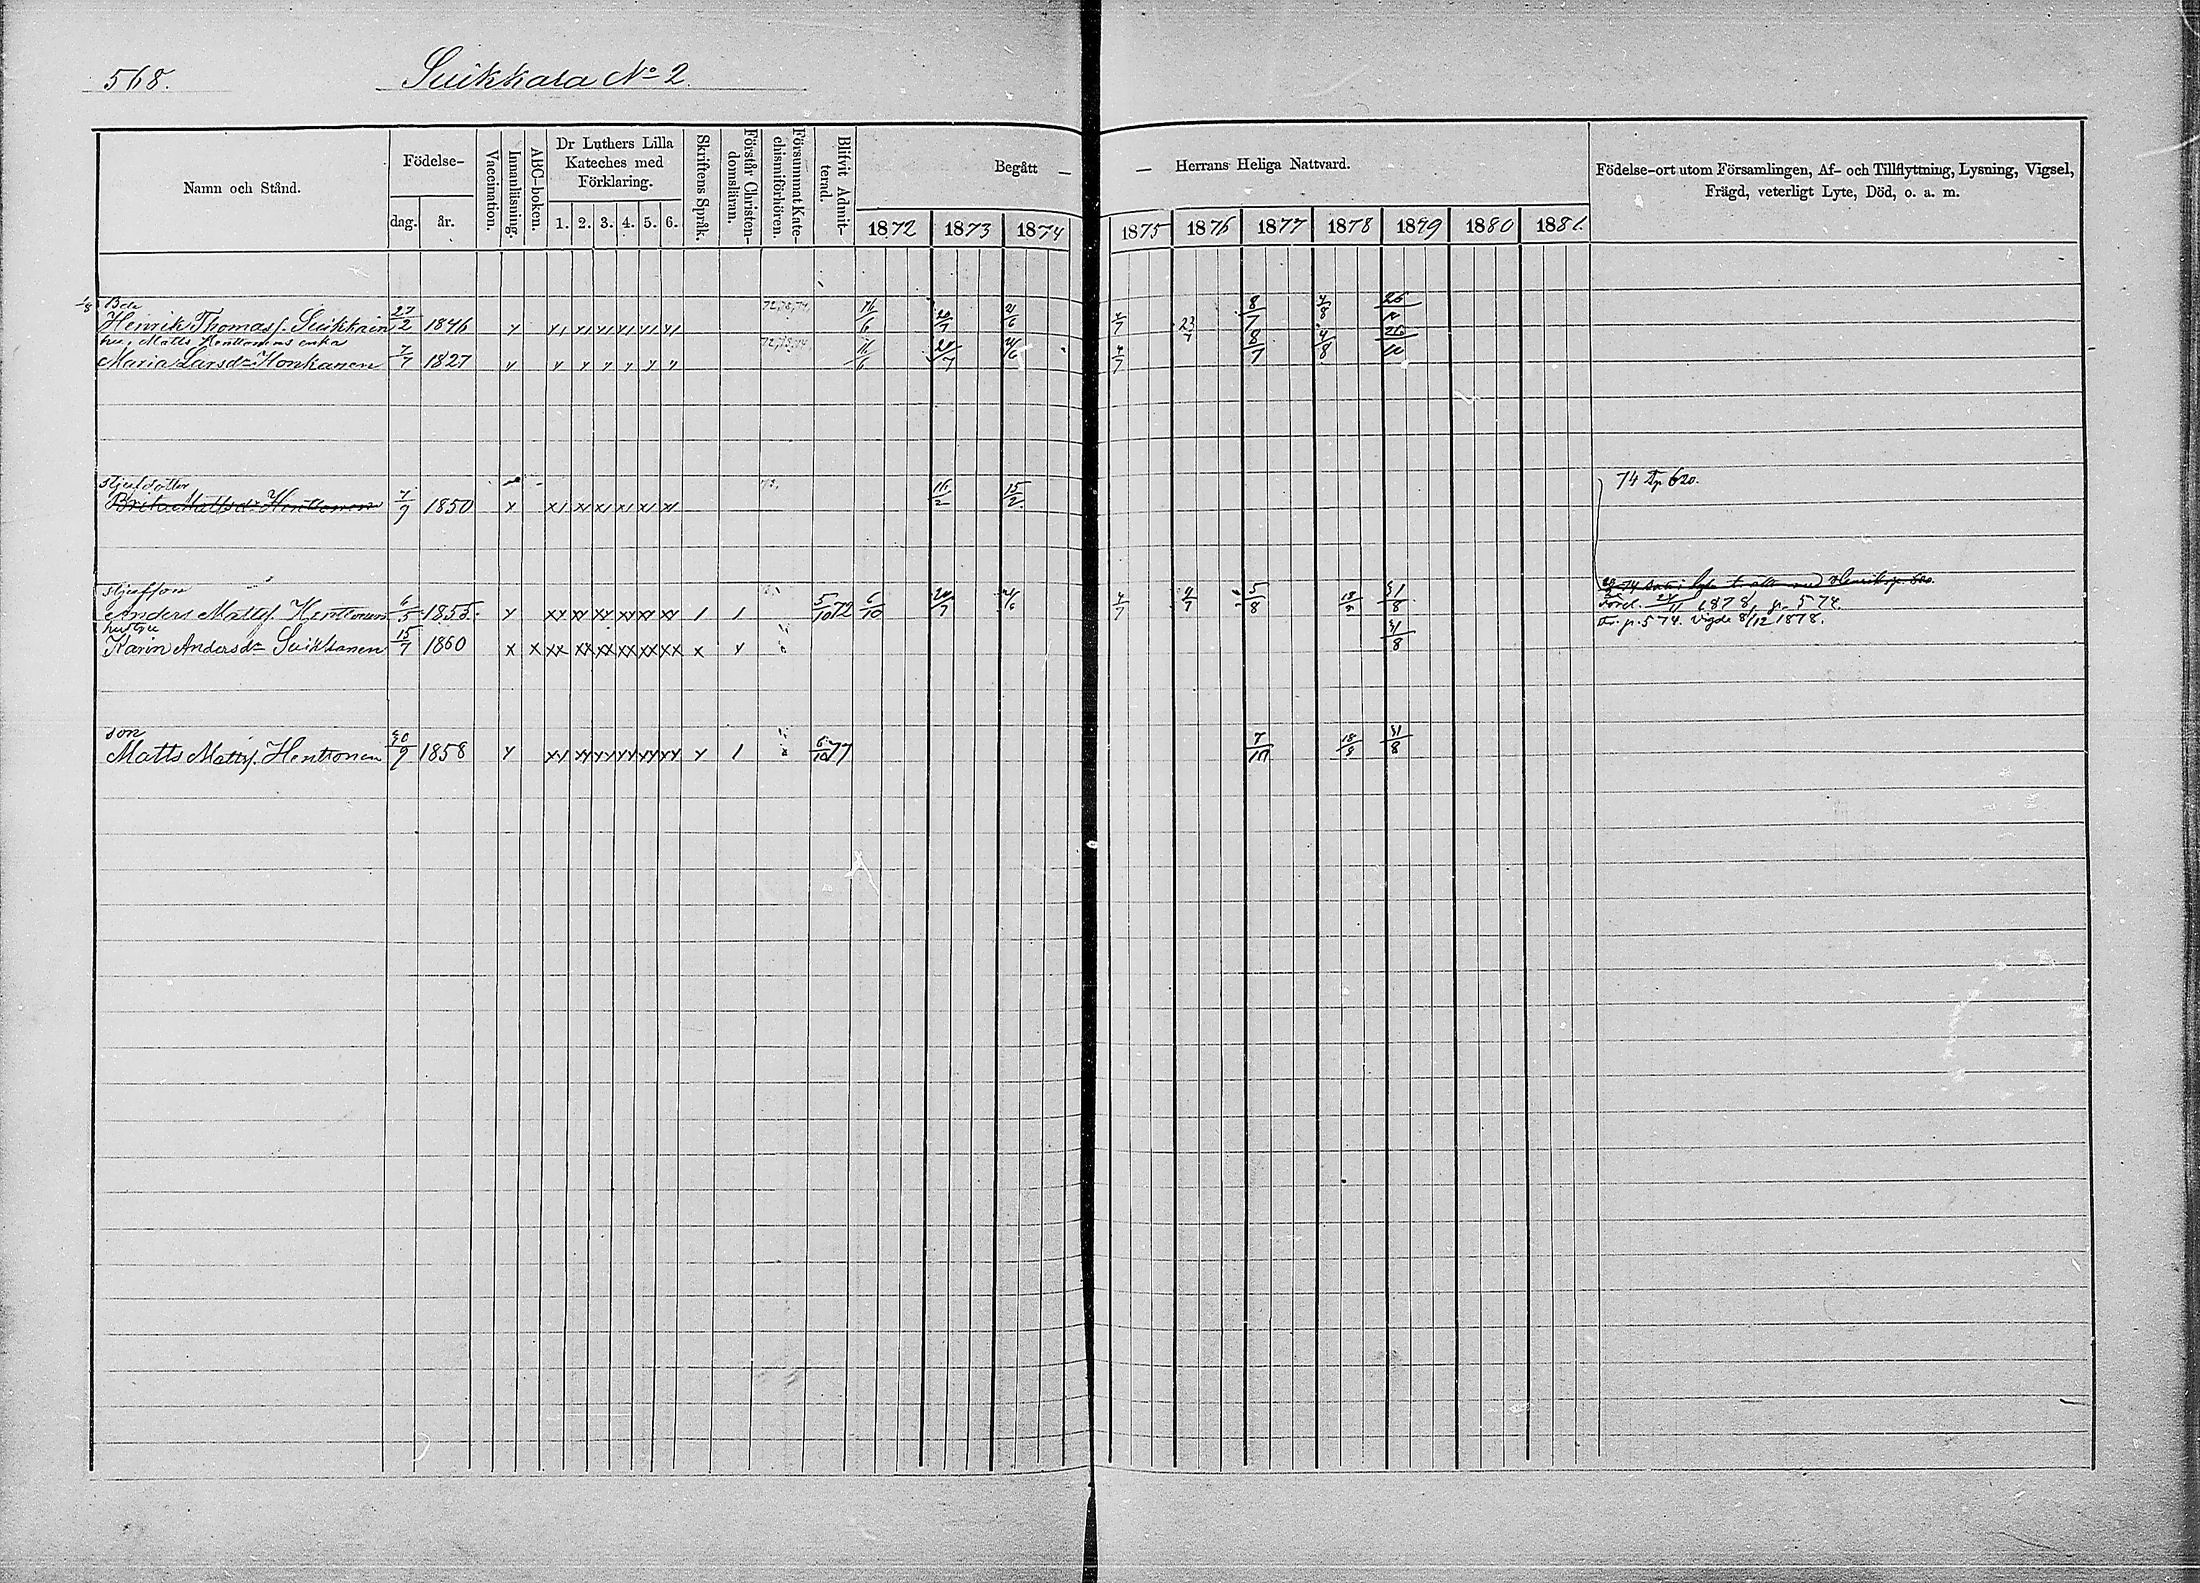 568. Suikkala No 2.
Namn och Stånd. Födelse- dag. år. Vaccination. Innanläsning. ABC-boken. Dr Luthers Lilla Kateches med Förklaring. 1. 2. 3. 4. 5. 6. Skriftens Språk. Förstår Christendomsläran. Försummat Katechismiförhören. Blifvit Admitterad. Begått — 1872 1873 1874
— Herrans Heliga Nattvard. 1875 1876 1877 1878 1879 1880 1881. Födelse-ort utom Församlingen, Af- och Tillflyttning, Lysning, Vigsel, Frägd, veterligt Lyte, Död, o. a. m.
Bde
Henrik Thomass. Suikkain 27/2 1846 11/6 20/7 21/6 4/7 23/7 8/7 4/8
hu, Matts Henttonens enka
Maria Larsdr Honkanen 7/7 1827 11/6 20/7 21/6 4/7 8/7 4/8
stjufdotter
Brita Mattsdr Henttonen 7/9 1850 16/2 15/2 74 Tr. 620.
stjufson
Anders Matts. Henttonen 6/5 1855. 5/10 72 6/10 20/7 21/6 4/7 4/7 5/8 18/8 31/8 1878, p. 574.
hustru
Karin Andersdr Suikkanen 15/7 1860 31/8 Fr. p. 574. vigde 8/12 1878.
son
Matts Matts. Henttonen 30/9 1858 6/10 77 7/10 18/8 31/8